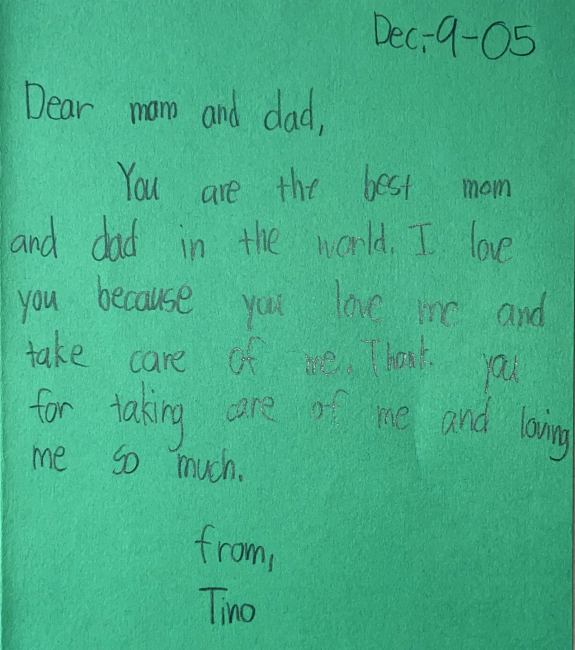 Dec.-9-05
Dear mom and dad,
You are the best mom
and dad in the world. I love
you because you love me and
take care of me. Thank you
for taking care of me and loving
me so much.
from,
Tino